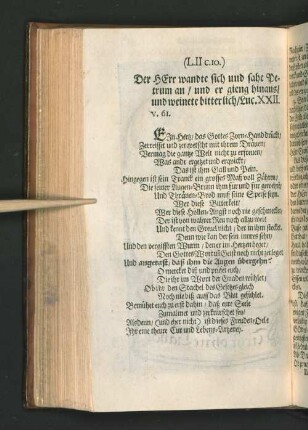 (L.II c.10.)
Der HErr wandte sich und sahe Pe-
trum an / und er gieng hinaus /
und weinete bitterlich / Luc. XXII.
v. 61.
EIn Hertz / das Gottes Zorn-Hand drückt /
Zerreisst und zerquetscht mit ihrem Dräuen /
Vermag die gantze Welt nicht zu erfreuen /
Was andr ergetzet und erquickt /
Das ist ihm Gall und Pein.
Hingegen ist sein Tranck ein grosses Maß voll Zähren /
Die seiner Augen-Brunn ihm für und für gewehrt /
Und Thränen-Brod muß seine Speise seyn.
Wer diese Bitterkeit
Wer diese Höllen-Angst noch nie geschmecket /
Der ist von wahrer Reu noch allzu weit
Und kennt den Greuel nicht / der in ihm stecket.
Denn wie kan der sein innres sehen /
Und den vergifften Wurm / der er im Hertzen heget;
Den Gottes Wort und Geist noch nicht
Und angereitzt / daß ihm die Augen übergehn?
O mercket diß und prüfet euch /
Die ihr im Wort der Gnaden wühlet;
Ob ihr den Stachel des Gesetzes gleich
Noch nie biß auff das Blut gefühlet.
Bemühet euch zu erst dahin / daß eure Sinn
Zumalmet und zerknirschet sey /
Alsdenn / (und eher nicht) ist dieses Freuden-Oele
Ihr eine theure Cur und Lebens-Artzeney.